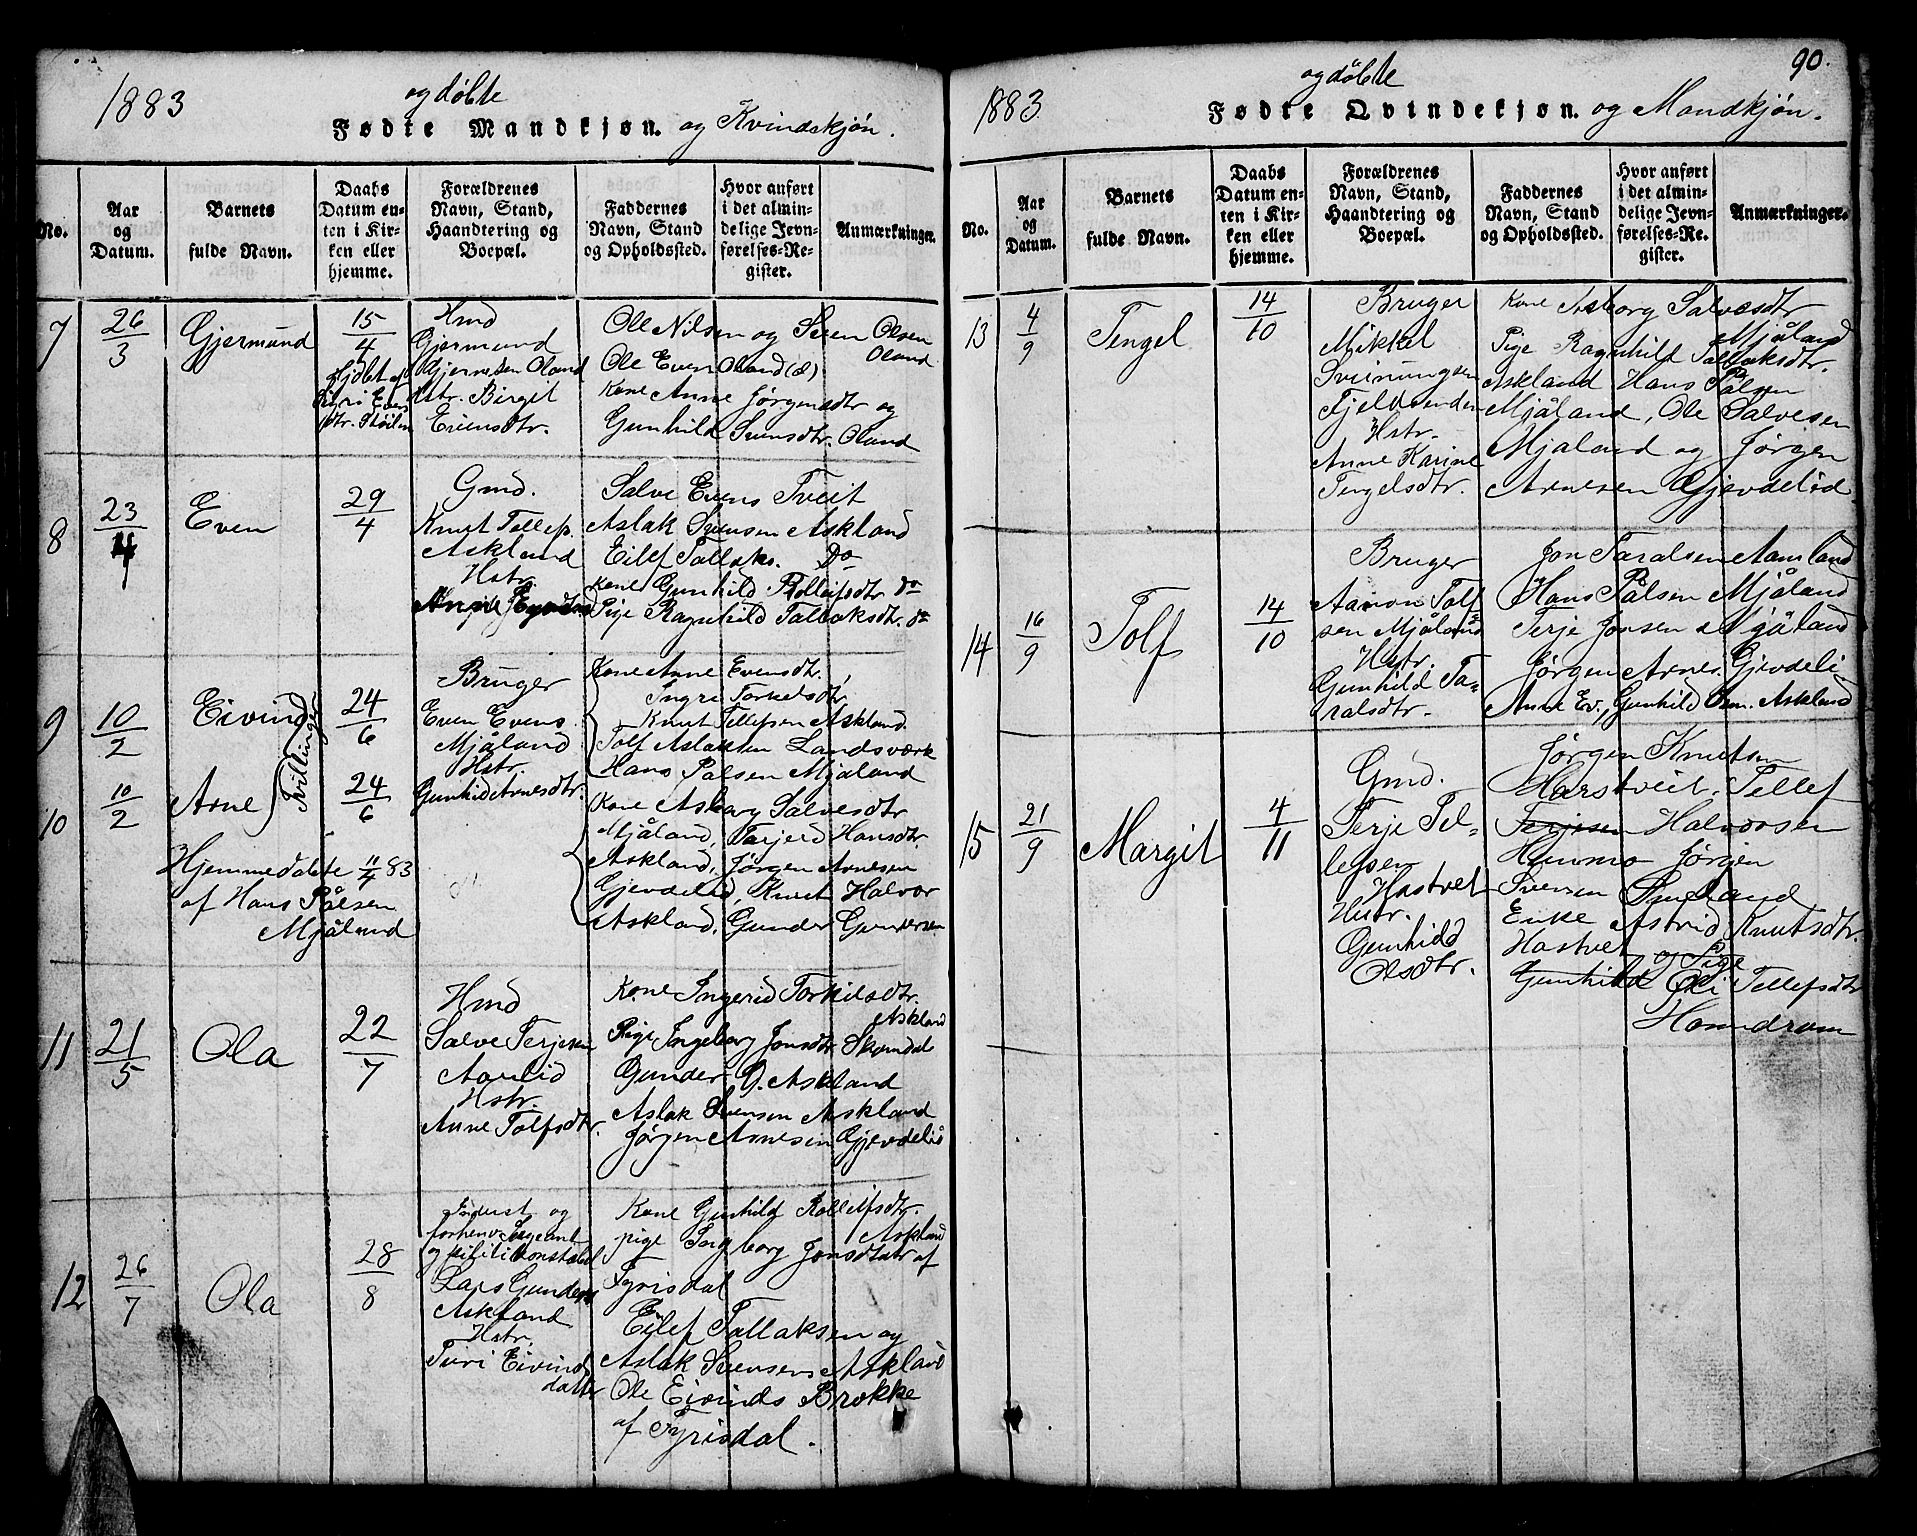 1883
og døbte
Fødte Mandkjøn. og Kvindskjøn.
No.
Aar og Datum.
Barnets fulde Navn.
Daabs Datum enten i Kirken eller hjemme.
Forældrenes Navn, Stand, Haandtering og Boepæl.
Faddernes Navn, Stand og Opholdssted.
Hvor anført i det almindelige Jevnførelses-Register.
Anmærkninger.
7
26/3
Gjermund
15/4
Hmd
Gjermund
Gjermdsen Oland
Hstr. Birgit
Evensdtr.
Ole Nilsen og Sven Olsen
Oland
Ole Even Oland (æ)
Kone Anne Jørgensdtr og
Gunhild Svensdtr. Oland
8
23/4
Even
29/4
Gmd.
Knut Tellefs.
Askland
Hstr.
Salve Evens Tveit
Aslak Svensen Askland
Eilef Tallaks. Do
Kone Gunhild Rolleifsdtr do
Pige Ragnhild Tallaksdtr. do
9
10/2
Eivind
Tvillinger
24/6
Bruger
Even Evens.
Mjåland
Hstr.
Gunhild Arnesdtr.
Kone Anne Evensdtr.
Ingri Torkelsdtr,
Knut Tellefsen Askland.
Tolf Aslaksen Landsværk
Hans Pålsen Mjåland
10
10/2
Arne
24/6
Hjemmedøbte 11/4 83
af Hans Pålsen
Mjåland
Kone Asborg Salvesdtr
Mjåland, Tarjerd Hansdtr.
Askland, Jørgen Arnesen
Gjevdelid, Knut Halvor
Askland, Gunder Gundersen
11
21/5
Ola
22/7
Hmd
Salve Terjesen
Aarlid
Hstr.
Anne Tolfsdtr.
Kone Ingerid Torkilsdtr.
Askland
Pige Ingeborg Jonsdtr Skomdal
Gunder G. Askland
Aslak Svensen Askland
Jørgen Arnesen Gjevdelid
12
26/7
Ola
28/8
Inderst og
forhenv. Sergeant
Lars Gunders
Askland
Hstr.
Turi Eivind
datter
Kone Gunhild Rolleifsdtr.
Askland
pige Ingborg Jonsdatr af
Fyrisdal
Eilef Tallaksen og
Aslak Svensens Askland
Ole Eivinds Brokke
af Fyrisdal.
1883.
og døbte
90.
Fødte Qvindekjøn. og Mandkjøn.
No.
Aar og Datum.
Barnets fulde Navn.
Daabs Datum enten i Kirken eller hjemme.
Forældrenes Navn, Stand, Haandtering og Boepæl.
Faddernes Navn, Stand og Opholdssted.
Hvor anført i det almindelige Jevnførelses-Register.
Anmærkninger.
13
4/9
Tengel
14/10
Bruger
Mikkel
Sveinungsen
Fjeldsenden
Hstr.
Anne Karine
Tengelsdtr.
Kone Asborg Salvesdtr
Mjåland
Pige Ragnhild Tallaksdtr.
Askland Hans Pålsen
Mjåland, Ole Salvesen
Mjåland og Jørgen
Arnesen Gjevdelid
14
16/9
Tolf
14/10
Bruger
Aanon Tolf
sen Mjåland
Hstr.
Gunhild Ta-
ralsdtr.
Jon Taralsen Aamland
Hans Pålsen Mjåland
Terje Jonsen Mjåland
Jørgen Arnes. Gjevdeli
Anne Ev., Gunhild Osm. Askland
15
21/9
Margit
4/11
Gmd.
Terje Tel-
lefsen
Hastvet
Hustr.
Gunhild
Olsdtr.
Jørgen Knutsen
Harstveit. Tellef
Terjesen Halvorsen
Hummo Jørgen
Svensen
Enke Astrid Knutsdtr.
Hastvet og Pige
Gunhild Tellefsdtr
Homdrom